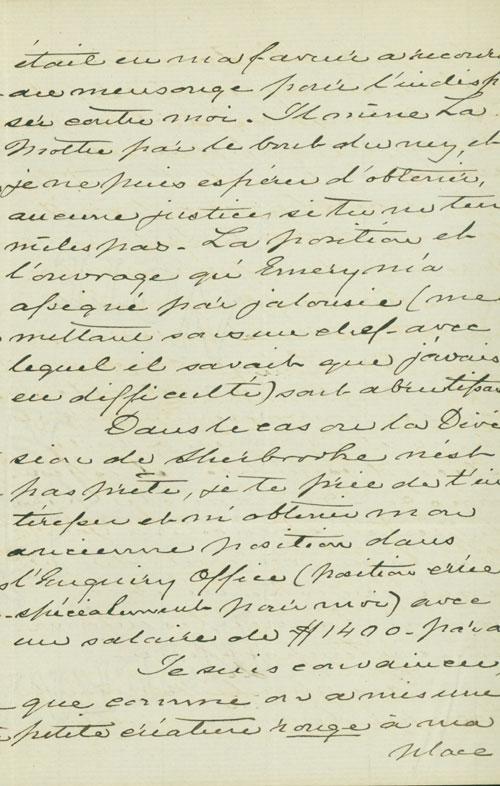 était en ma faveur a recours
au mensonge pour l'indispo
ser contre moi. Il mène La
Mothe par le bout du nez, et
je ne puis espérer d'obtenir,
aucune justice si tu ne t'en
mêles pas. La position et
l'ouvrage qu'Emery m'a
assigné par jalousie (me
mettant sous un chef avec
lequel il savait que j'avais
eu difficulté) sont abrutissan
Dans le cas où la Divi
sion de Sherbrooke n'est
pas prête, je te prie de t'in
téresser et m'obtenir mon
ancienne position dans
l'Enquiry Office (position créée
spécialement pour moi) avec
un salaire de $1400 - par a
Je suis convaincu,
que comme on a mis une
petite créature rouge à ma
place